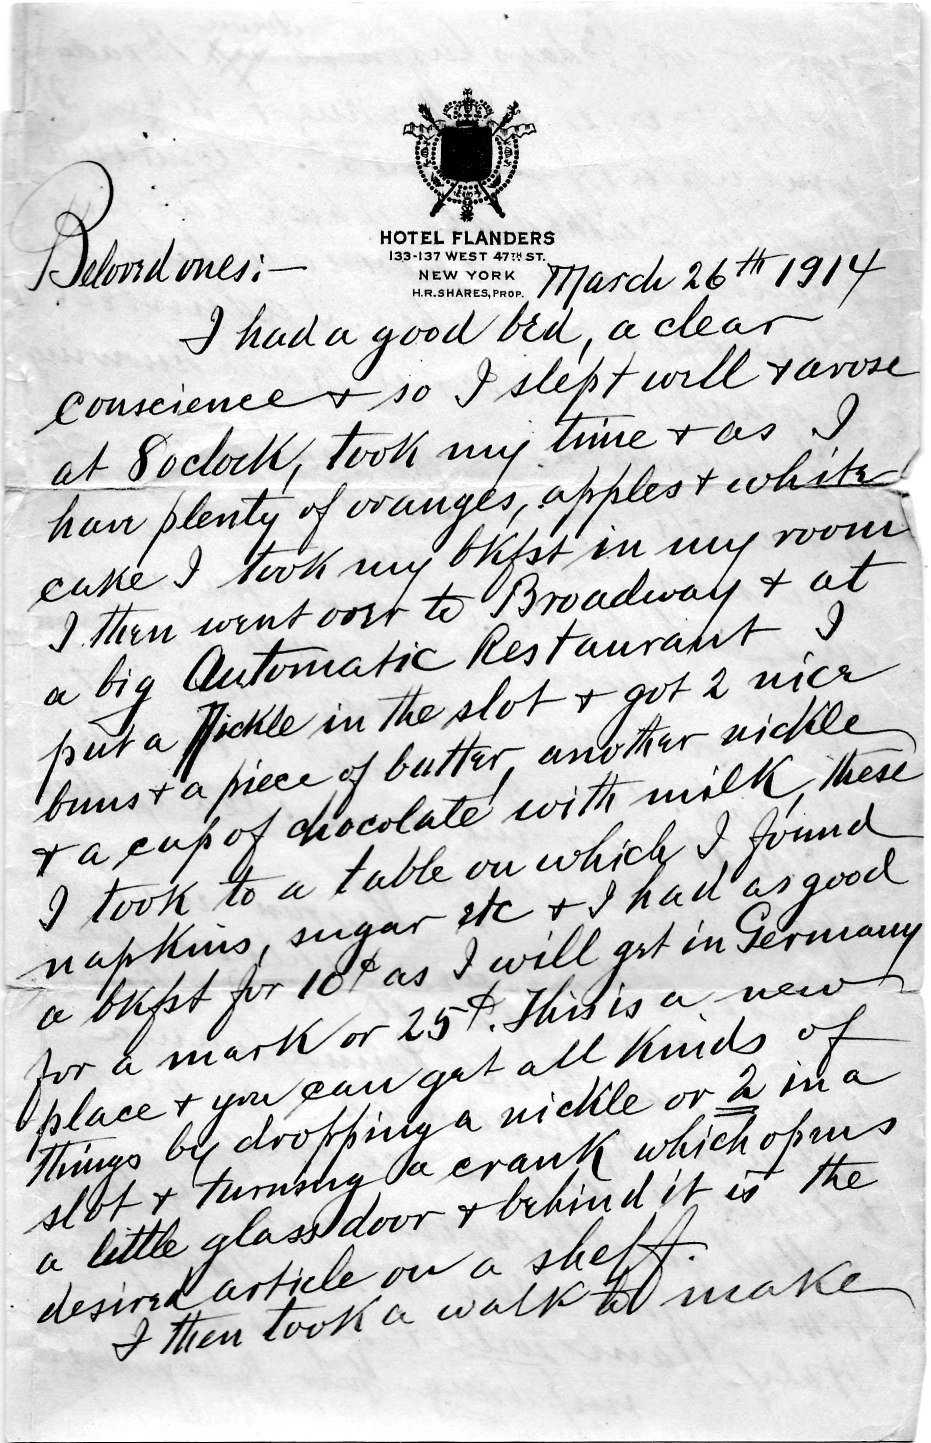 HOTEL FLANDERS
133-137 WEST 47TH ST.
NEW YORK
H.R. SHARES, PROP.
Beloved ones:— March 26th 1914
I had a good bed, a clear
conscience & so I slept well & arose
at 8 oclock, took my time & as I
have plenty of oranges, apples & white
cake I took my bkfst in my room
I then went over to Broadway & at
a big Automatic Restaurant I
put a Nickle in the slot & got 2 nice
buns & a piece of butter, another nickle
& a cup of chocolate with milk, these
I took to a table on which I found
napkins, sugar etc & I had as good
a bkfst for 10¢ as I will get in Germany
for a mark or 25¢. This is a new
place & you can get all kinds of
things by dropping a nickle or 2 in a
slot & turning a crank which opens
a little glass door & behind it is the
desired article on a shelf.
I then took a walk to make